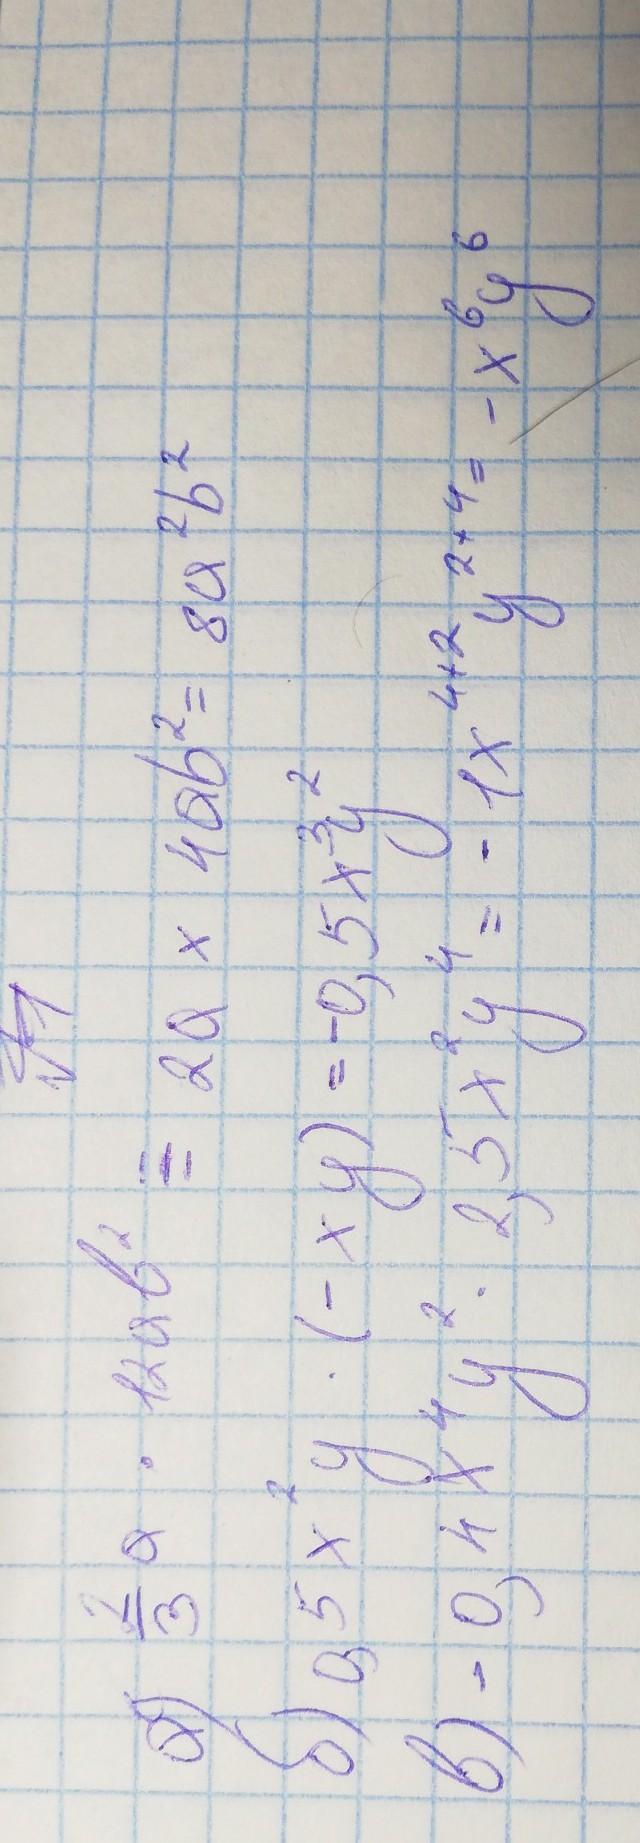 а) 2/3 a · 12ab² = 2a × 4ab² = 8a²b²
б) 0,5x²y · (-xy) = -0,5x³y²
в) -0,4x⁴y² · 2,5x²y⁴ = -1x⁴⁺²y²⁺⁴ = -x⁶y⁶